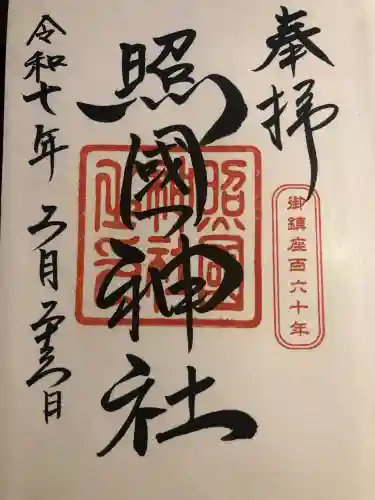 奉拝
御鎮座百六十年
照國神社
照國神社之印
令和七年 二月二十六日